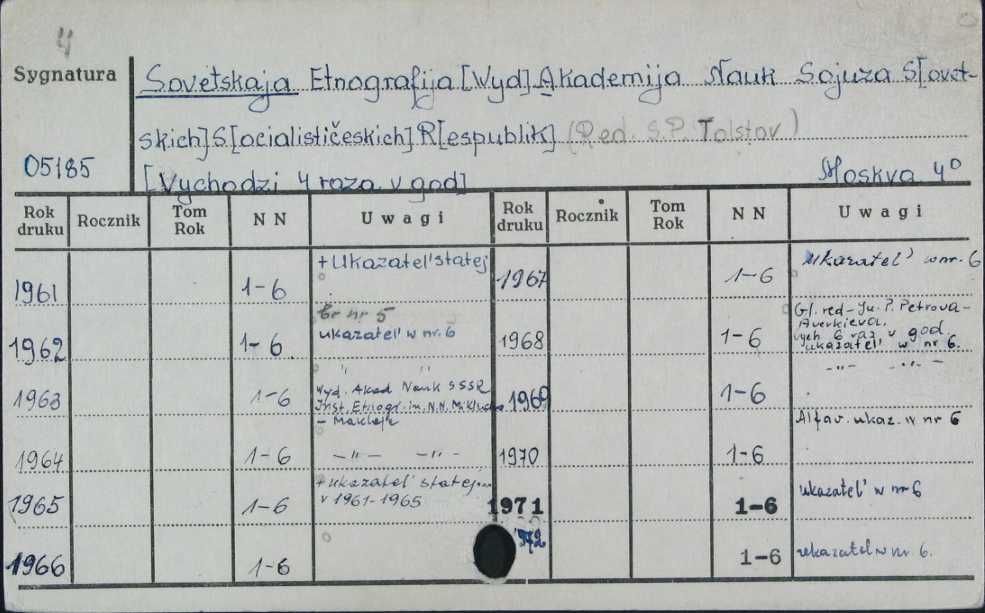 4
Sygnatura
Sovetskaja Etnografija [Wyd] Akademija Nauk Sojuza S[ovet-
skich] S[ocialističeskich] R[espublik] (Red. S.P. Tolstov)
05185
[Vychodzi 4 raza v god] Moskva 4°
Rok druku Rocznik Tom Rok N N Uwagi Rok druku Rocznik Tom Rok N N Uwagi
+ Ukazatel' statej
1961 1-6
Br nr 5
ukazatel' w nr. 6
1962 1-6
" "
Wyd. Akad Nauk SSSR
Inst. Etnogr. im. N.N. Miklucho
- Maklaja
1963 1-6
1964 1-6 - " - - " -
+ ukazatel' statej...
v 1961-1965
1965 1-6
1966 1-6
1967 1-6 ukazatel' w nr. 6
Gl. red - Ju. P. Petrova-
Averkieva,
vych 6 raz v god.
ukazatel' w nr 6.
1968 1-6
- " - - " -
1969 1-6
Alfav. ukaz. w nr 6
1970 1-6
1971 1-6 ukazatel' w nr 6
1972 1-6 ukazatel w nr. 6.